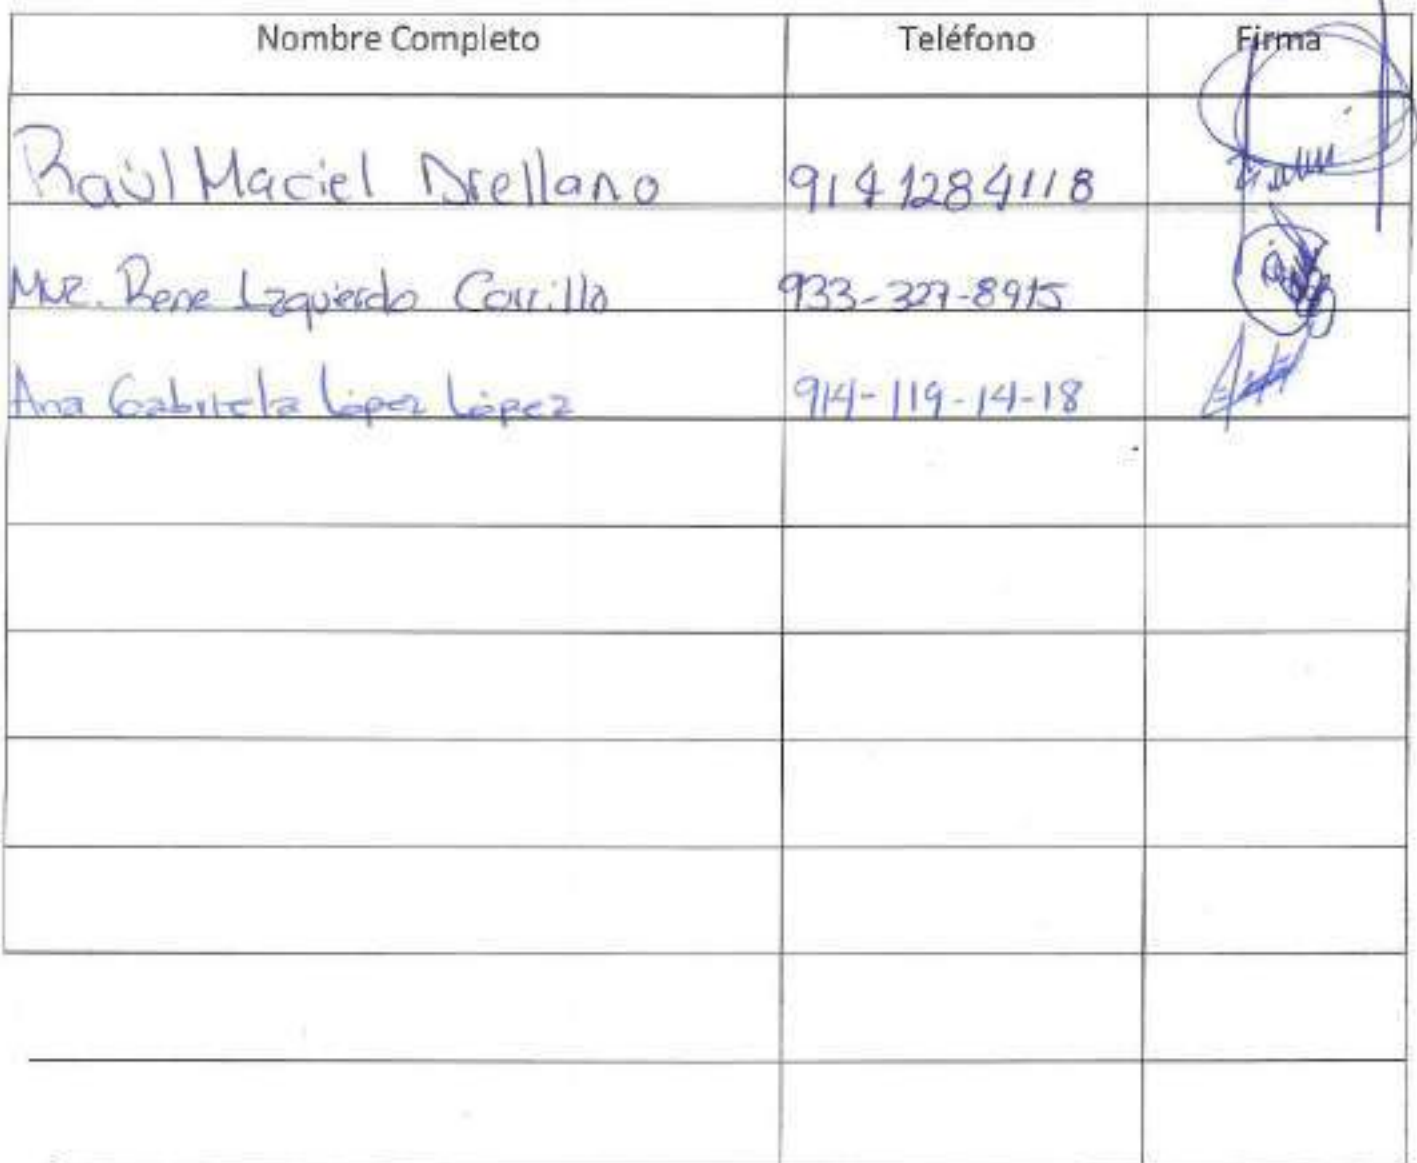 Nombre Completo Teléfono Firma
Raúl Maciel Arellano 9141284118
MVZ. Rene Izquierdo Carrillo 933-327-8915
Ana Gabriela López López 914-119-14-18